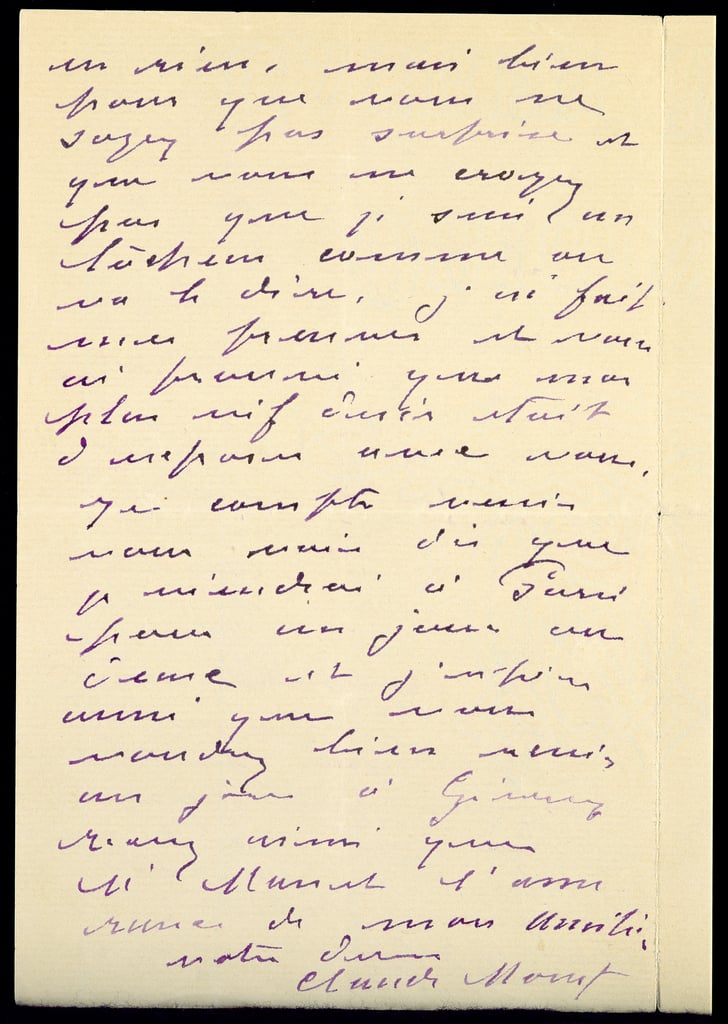 en rien, mais bien
pour que vous ne
soyez pas surprise et
que vous ne croyez
pas que je suis un
lâcheur comme on
va le dire, j'ai fait
mes preuves et vous
ai prouvé que mon
plus vif désir était
d'exposer avec vous.
Je compte venir
vous voir dès que
je viendrai à Paris
pour un jour ou
deux et j'espère
aussi que vous
voudrez bien venir
un jour à Giverny
recevez ainsi que
Mr Manet l'assu
rance de mon amitié,
votre dévoué
Claude Monet